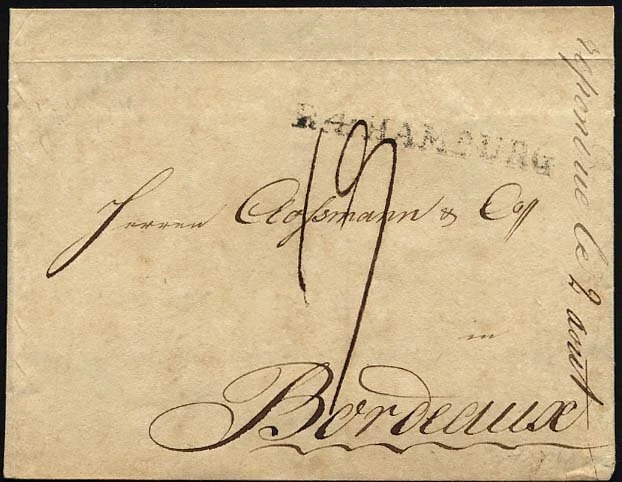 R.4.HAMBURG
19
Herren Cloßmann & Co
in
Bordeaux
Répondue le 2 aout